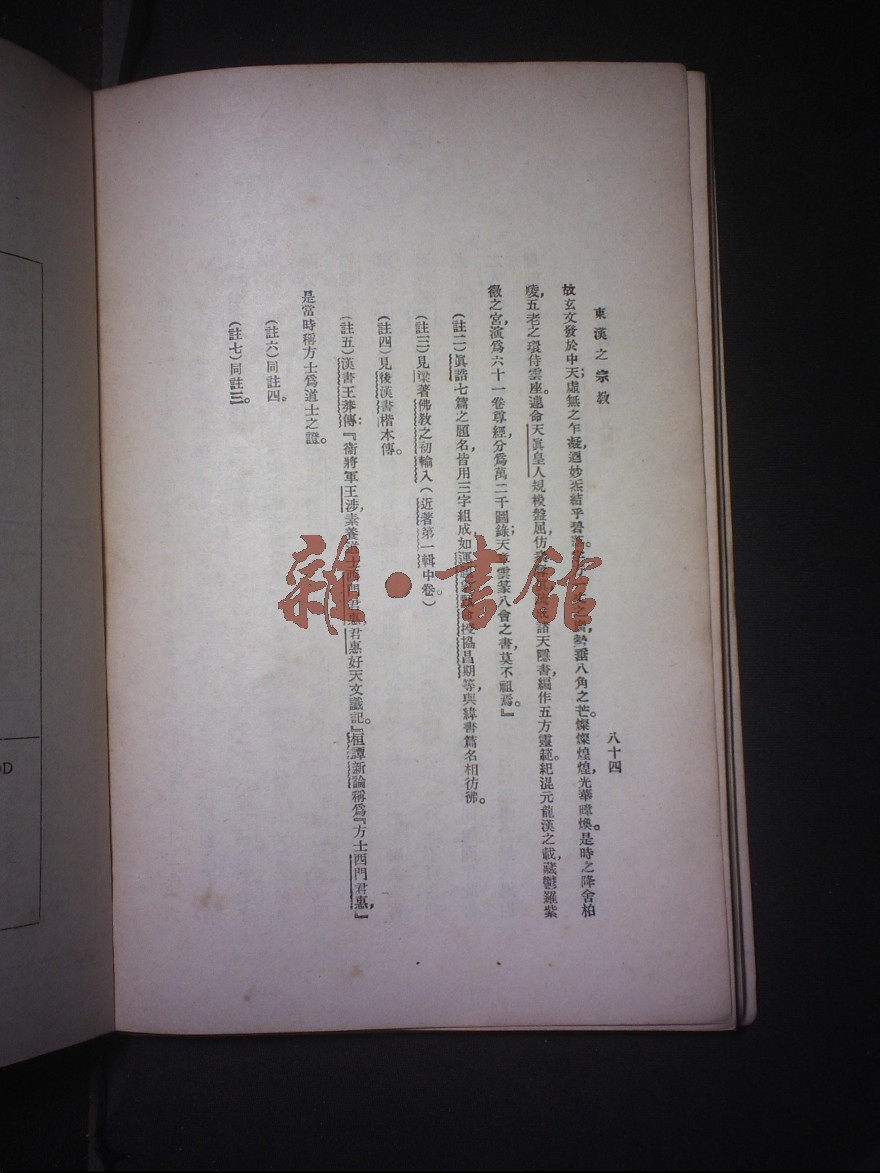 東漢之宗教
八十四
故玄文發於中天;虛無之乍凝,迺妙炁結乎碧落。勢垂八角之芒。燦燦煌煌,光華暐煥。是時之降舍柏
陵,五老之環侍雲座。遑命天眞皇人規模盤屈,仿諸天隱書,編作五方靈範。紀混元龍漢之載,藏鬱羅紫
微之宮,演爲六十一卷尊經,分爲萬二千圖錄;天章雲篆,八會之書,莫不祖焉。』
(註二)眞誥七篇之題名,皆用三字組成,如運授協昌期等,與緯書篇名相彷彿。
(註三)見梁著佛教之初輸入(近著第一輯中卷。)
(註四)見後漢書楷本傳。
(註五)漢書王莽傳:『衞將軍王涉,素養道士西門君惠,君惠好天文讖記。』桓譚新論稱爲『方士西門君惠,』
是當時稱方士爲道士之證。
(註六)同註四。
(註七)同註三。
雜·書館
OD